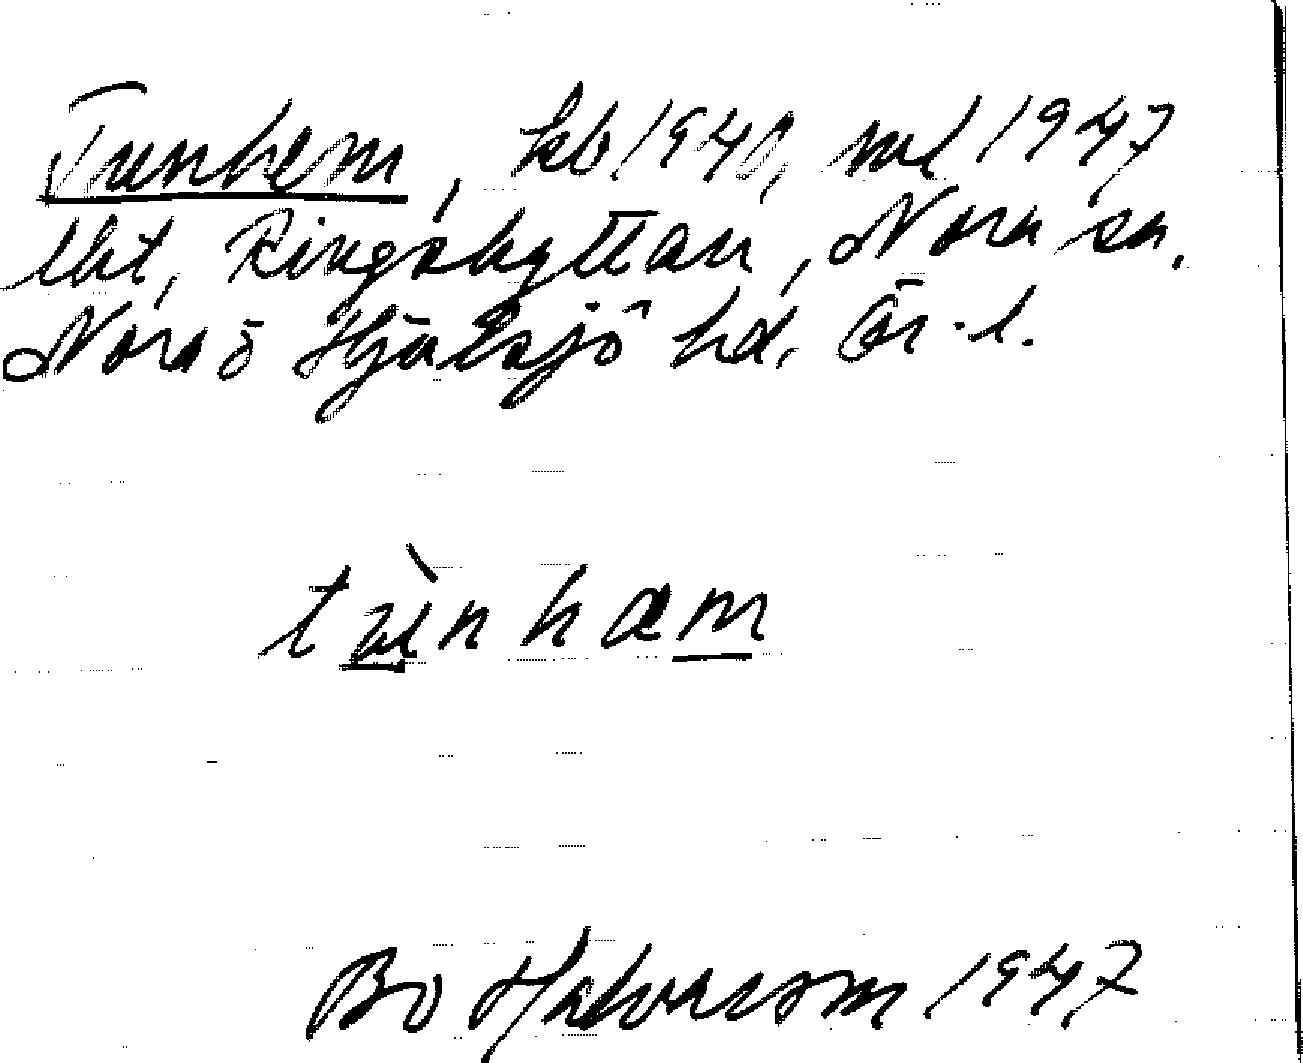 Tunhem, kb 1940, ml 1947
lht, Ringshyttan, Nora sn,
Nora o Hjulsjö hd. Ör. l.
tùnham
Bo Halvarson 1947